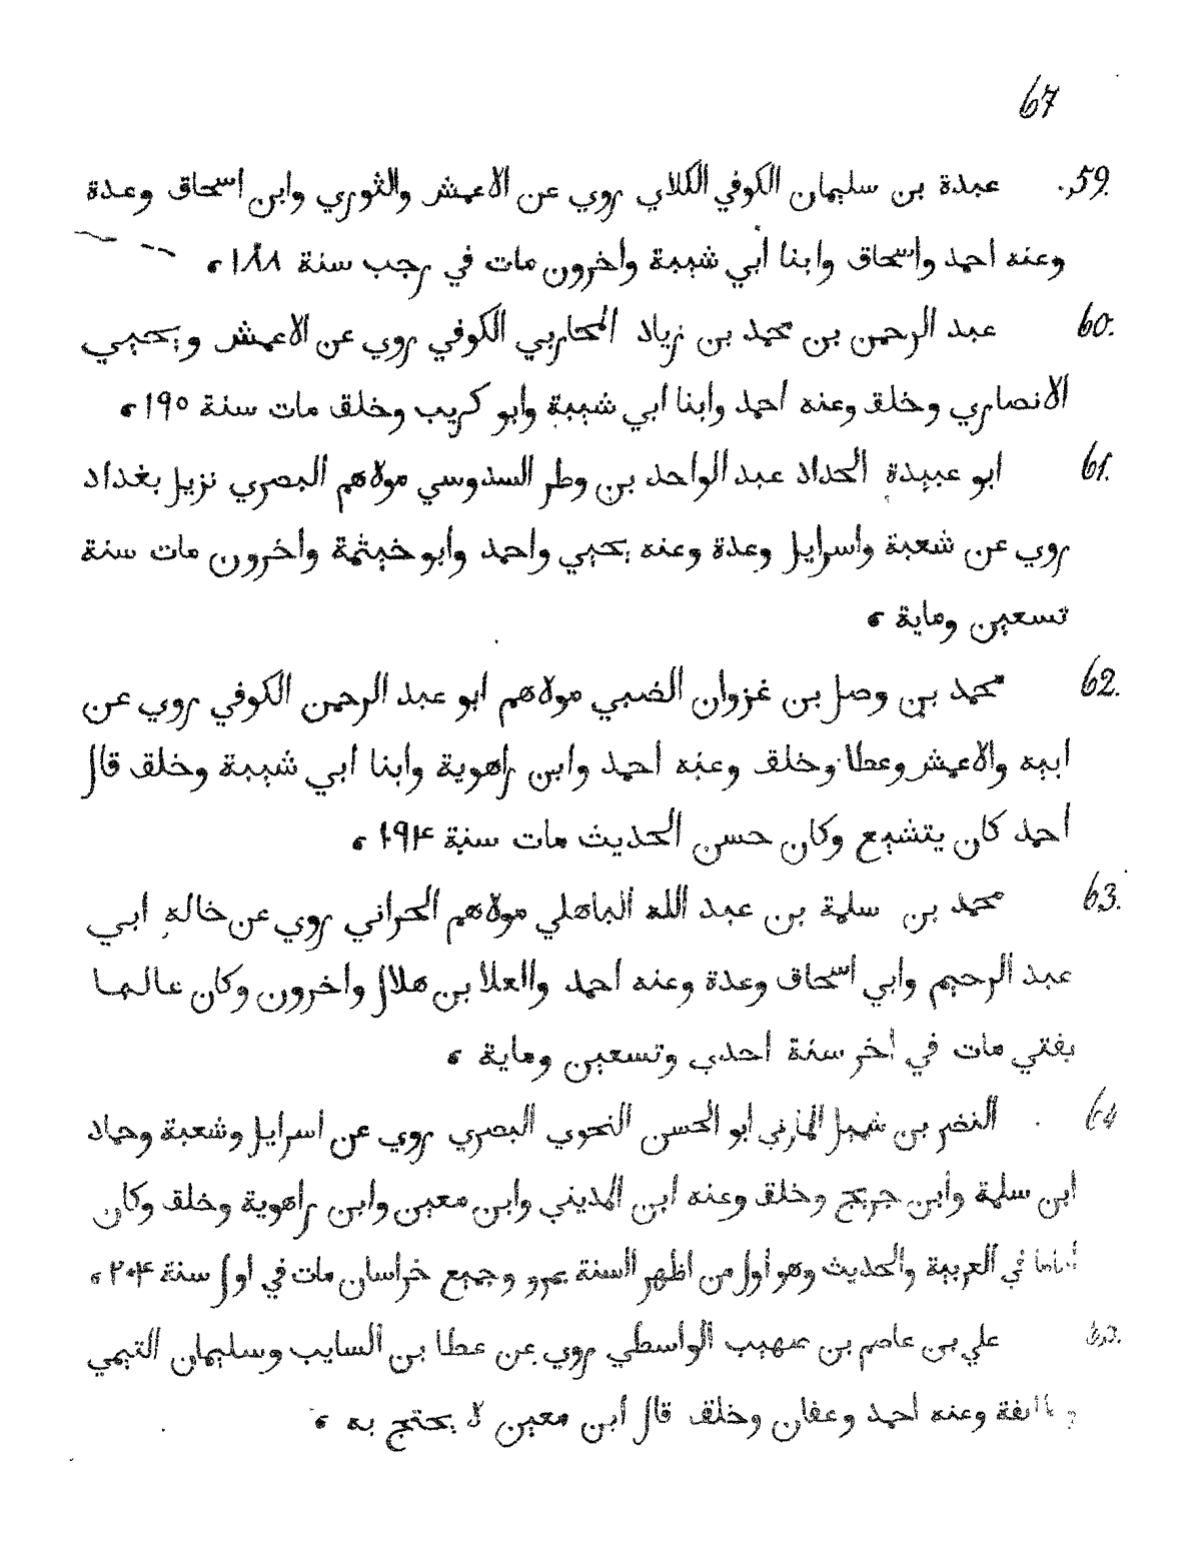 67
59. عبدة بن سليمان الكوفي الكلاي روي عن الاعمش والثوري وابن اسحاق وعدة
وعنه احمد واسحاق وابنا ابي شيبة واخرون مات في رجب سنة ١٨٨ ء
60. عبد الرحمن بن محمد بن زياد المحاربي الكوفي روي عن الاعمش ويحيي
الانصاري وخلق وعنه احمد وابنا ابي شيبة وابو كريب وخلق مات سنة ١٩٠ ء
61. ابو عبيدة الحداد عبد الواحد بن وطر السدوسي مولاهم البصري نزيل بغداد
روي عن شعبة واسرايل وعدة وعنه يحيي واحمد وابو خيثمة واخرون مات سنة
تسعين وماية ء
62. محمد بن وصل بن غزوان الضبي مولاهم ابو عبد الرحمن الكوفي روي عن
ابيه والاعمش وعطا وخلق وعنه احمد وابن راهوية وابنا ابي شيبة وخلق قال
احمد كان يتشيع وكان حسن الحديث مات سنة ١٩٤ ء
63. محمد بن سلمة بن عبد الله الباهلي مولاهم الحراني روي عن خاله ابي
عبد الرحيم وابي اسحاق وعدة وعنه احمد والعلا بن هلال واخرون وكان عالما
يفتي مات في اخر سنة احدي وتسعين وماية ء
64 النضر بن شميل المازني ابو الحسن النحوي البصري روي عن اسرايل وشعبة وحماد
ابن سلمة وابن جريج وخلق وعنه ابن المديني وابن معين وابن راهوية وخلق وكان
اماما في العربية والحديث وهو اول من اظهر السنة بمرو وجميع خراسان مات في اول سنة ٢٠٤ ء
علي بن عاصم بن صهيب الواسطي روي عن عطا بن السايب وسليمان التيمي
وعنه احمد وعفان وخلق قال ابن معين لا يحتج به ء